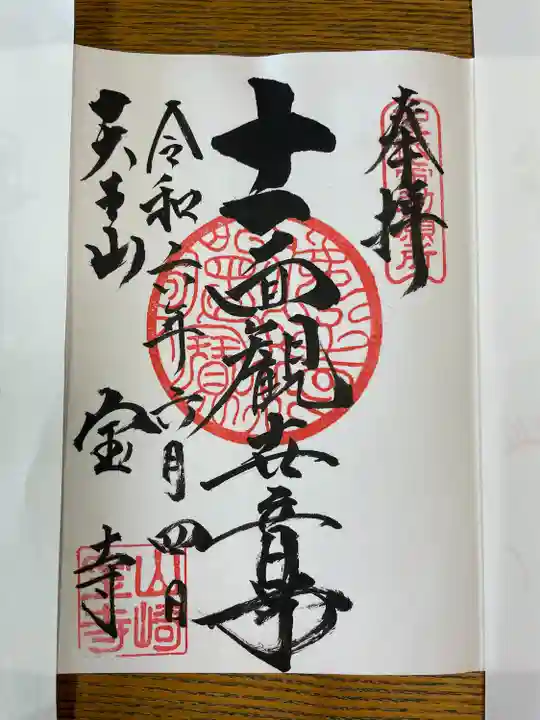 奉拝
十一面観世音
令和六年六月四日
天王山
宝寺
山崎
宝寺